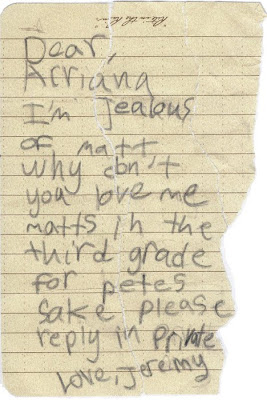 Dear,
Arriana
I'm jealous
of matt
why don't
you love me
matts in the
third grade
for petes
sake please
reply in private
love, jeremy